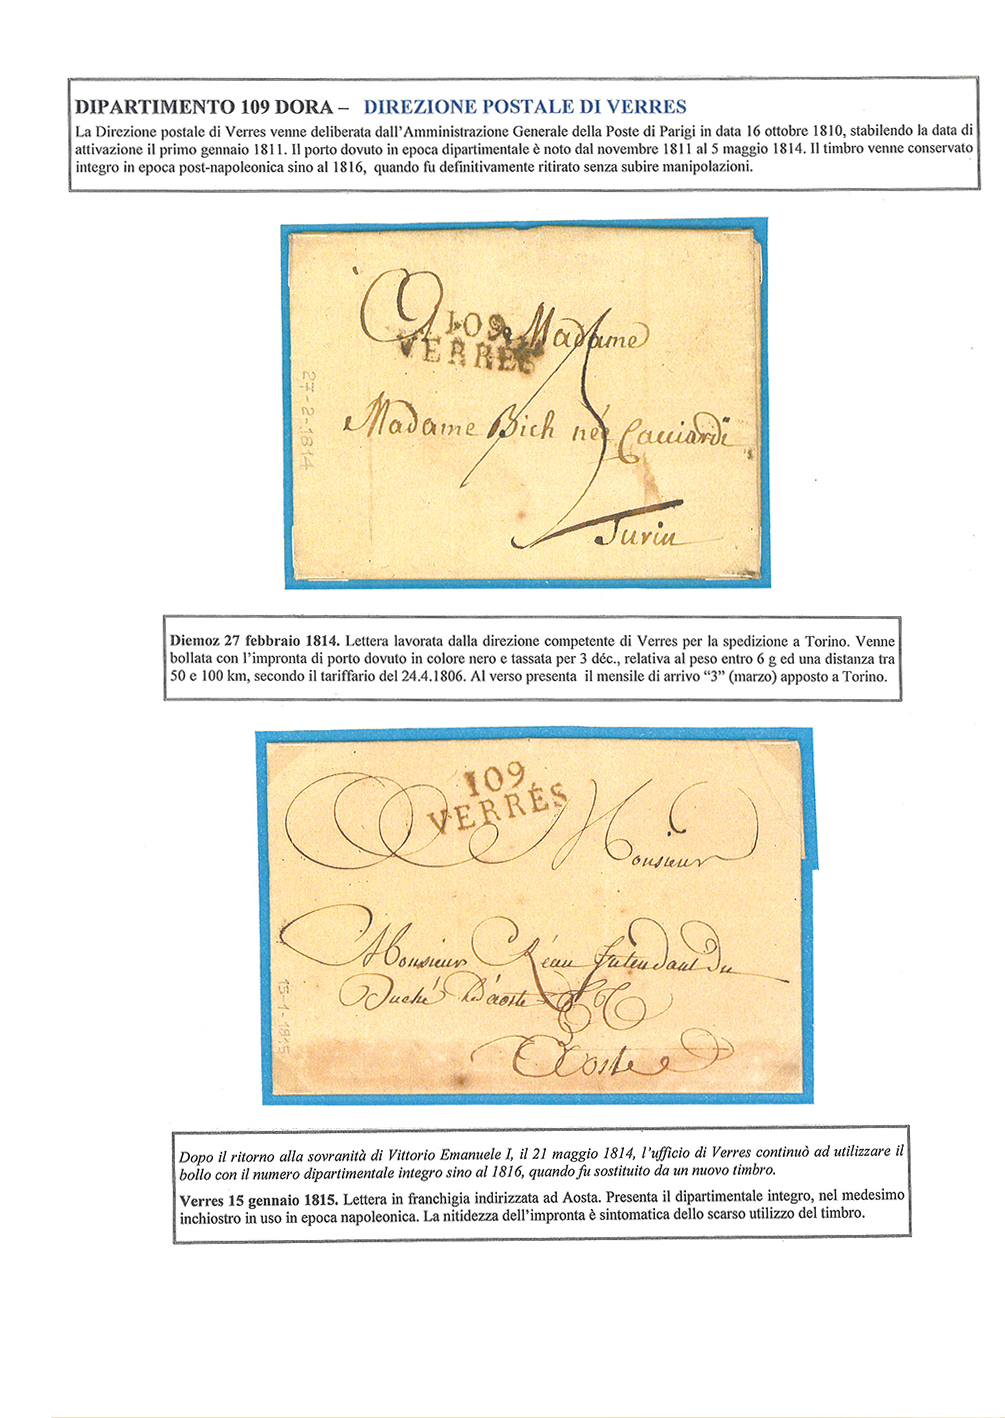 DIPARTIMENTO 109 DORA – DIREZIONE POSTALE DI VERRES
La Direzione postale di Verres venne deliberata dall'Amministrazione Generale della Poste di Parigi in data 16 ottobre 1810, stabilendo la data di
attivazione il primo gennaio 1811. Il porto dovuto in epoca dipartimentale è noto dal novembre 1811 al 5 maggio 1814. Il timbro venne conservato
integro in epoca post-napoleonica sino al 1816, quando fu definitivamente ritirato senza subire manipolazioni.
109
VERRES
Madame
Madame Bich née Cacciardi
Turin
27-2-1814
Diemoz 27 febbraio 1814. Lettera lavorata dalla direzione competente di Verres per la spedizione a Torino. Venne
bollata con l'impronta di porto dovuto in colore nero e tassata per 3 déc., relativa al peso entro 6 g ed una distanza tra
50 e 100 km, secondo il tariffario del 24.4.1806. Al verso presenta il mensile di arrivo “3” (marzo) apposto a Torino.
109
VERRÉS
Monsieur
Monsieur Réan Intendant Du
Duché D'aoste
Aoste
15-1-1815
Dopo il ritorno alla sovranità di Vittorio Emanuele I, il 21 maggio 1814, l'ufficio di Verres continuò ad utilizzare il
bollo con il numero dipartimentale integro sino al 1816, quando fu sostituito da un nuovo timbro.
Verres 15 gennaio 1815. Lettera in franchigia indirizzata ad Aosta. Presenta il dipartimentale integro, nel medesimo
inchiostro in uso in epoca napoleonica. La nitidezza dell'impronta è sintomatica dello scarso utilizzo del timbro.